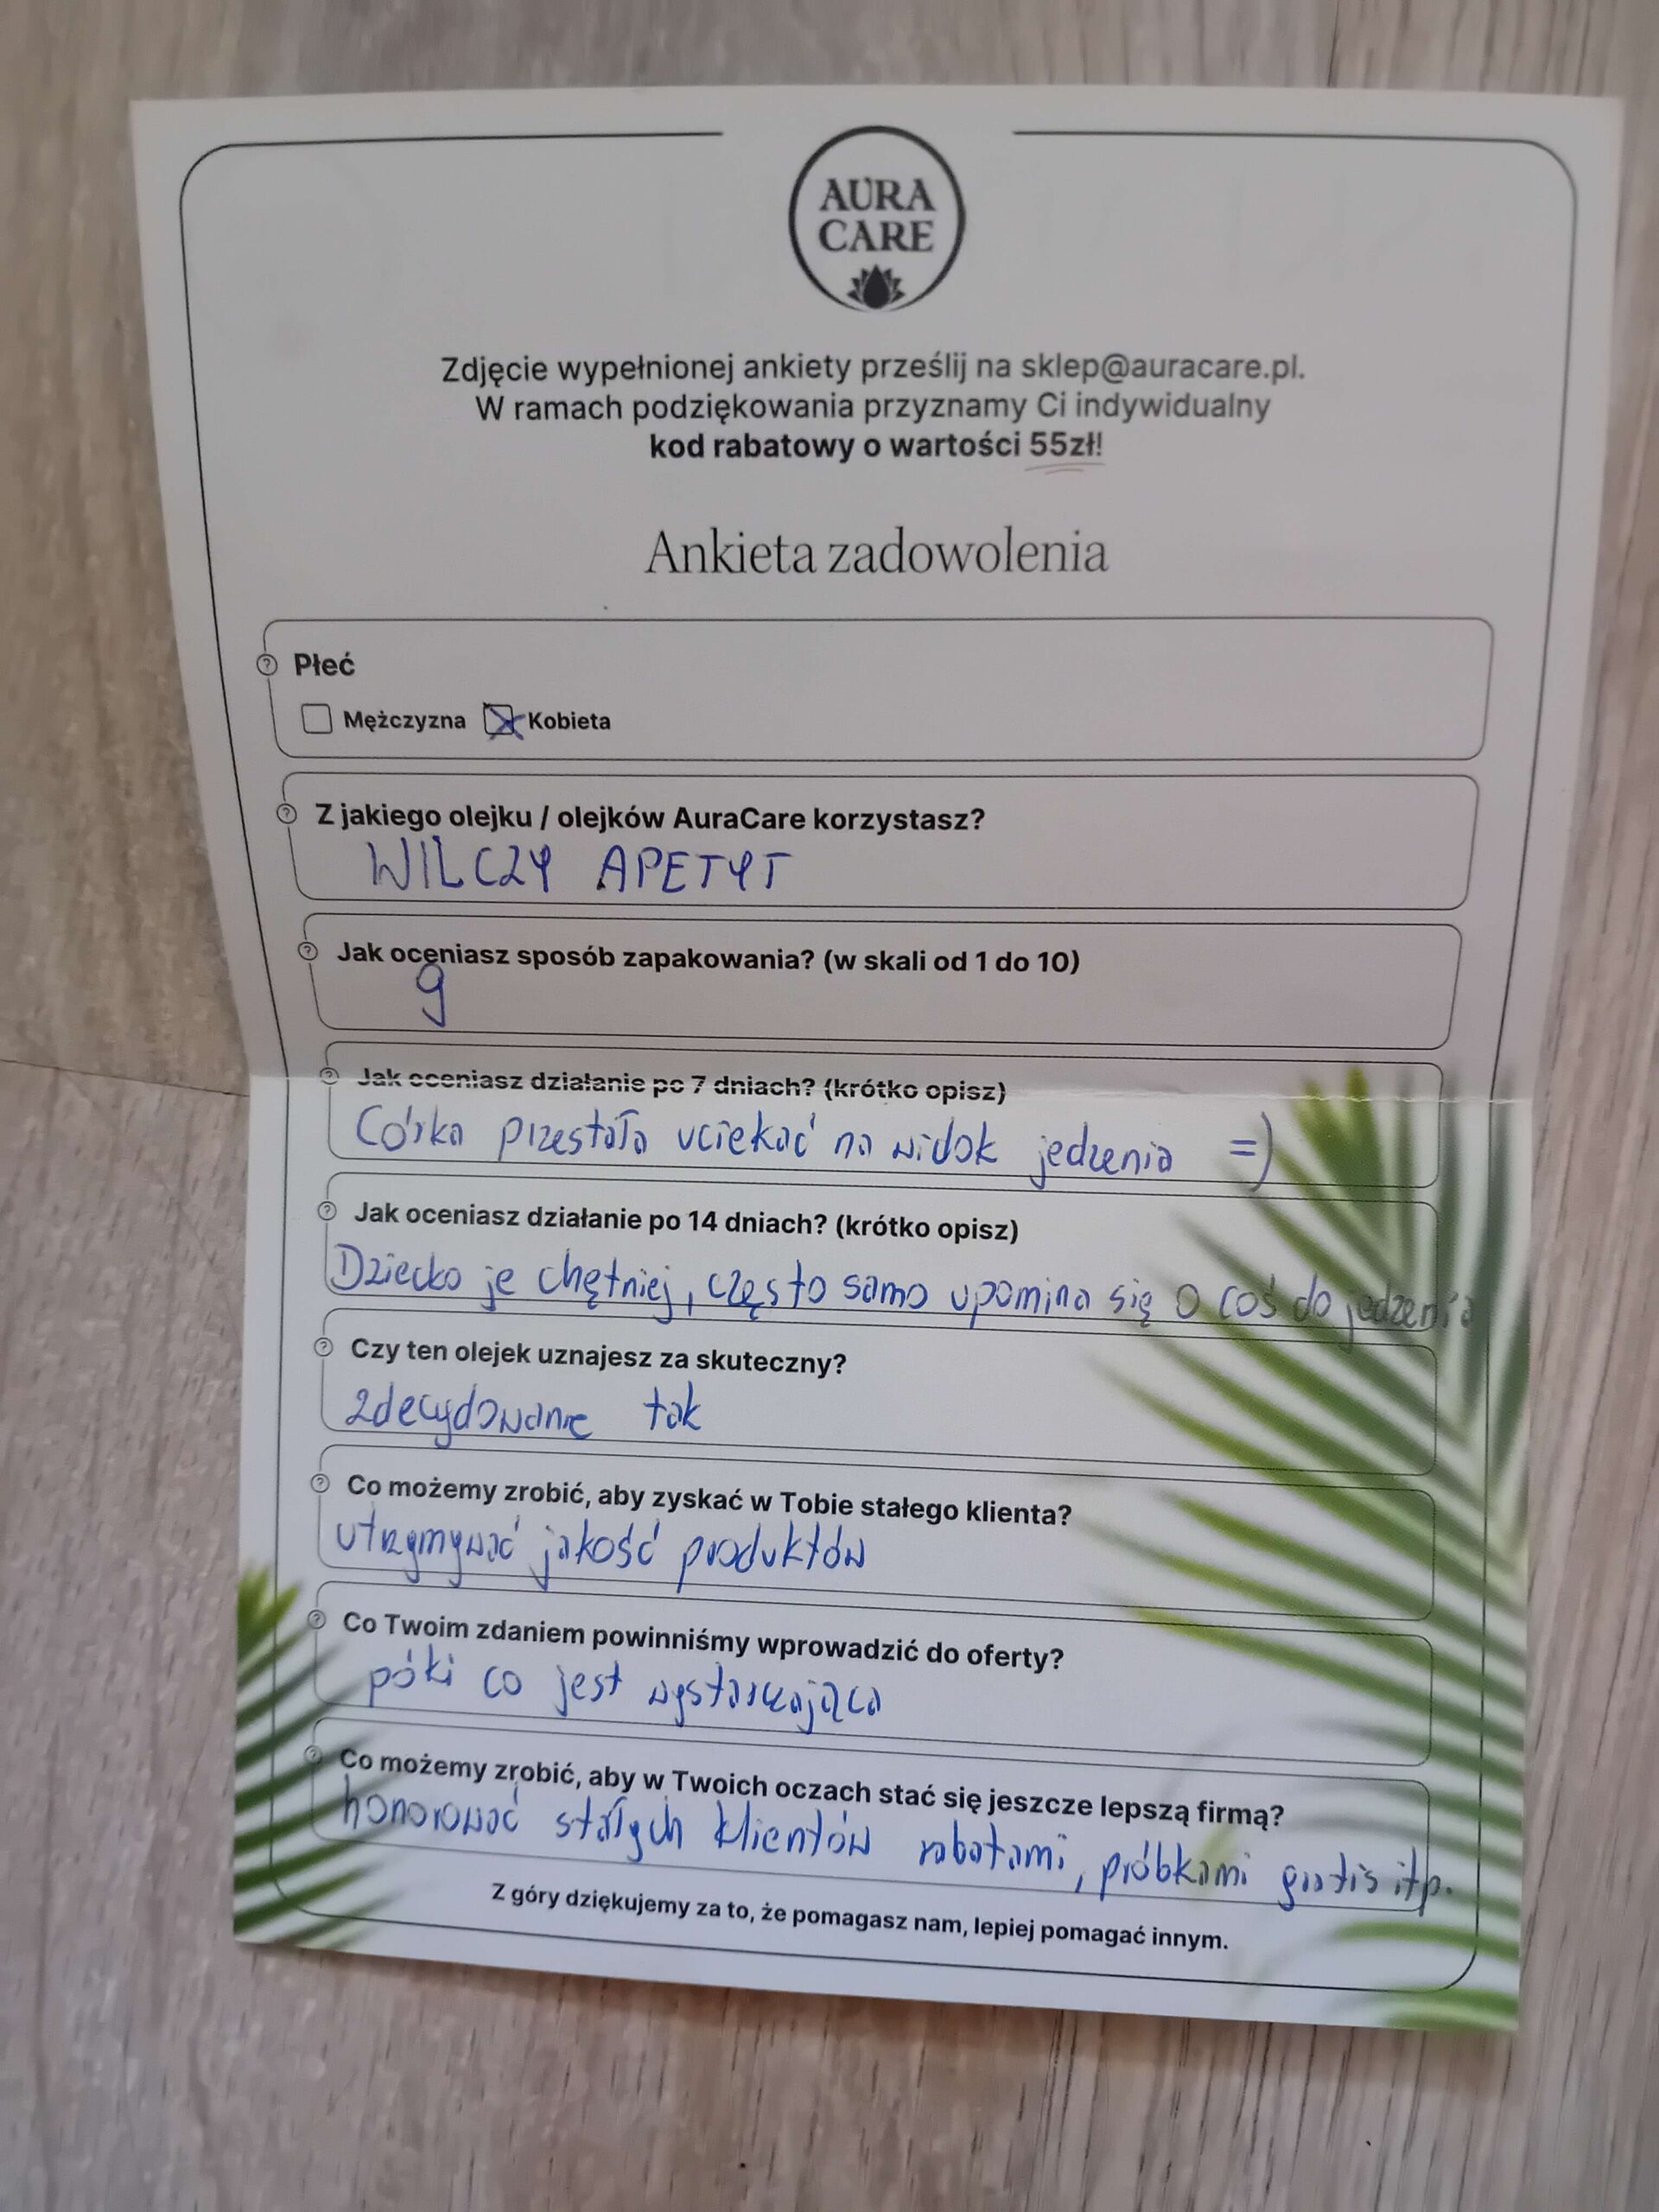 AURA
CARE
Zdjęcie wypełnionej ankiety prześlij na sklep@auracare.pl.
W ramach podziękowania przyznamy Ci indywidualny
kod rabatowy o wartości 55zł!
Ankieta zadowolenia
Płeć
Mężczyzna Kobieta
Z jakiego olejku / olejków AuraCare korzystasz?
WILCZY APETYT
Jak oceniasz sposób zapakowania? (w skali od 1 do 10)
9
Jak oceniasz działanie po 7 dniach? (krótko opisz)
Córka przestała uciekać na widok jedzenia =)
Jak oceniasz działanie po 14 dniach? (krótko opisz)
Dziecko je chętniej, często samo upomina się o coś do jedzenia
Czy ten olejek uznajesz za skuteczny?
zdecydowanie tak
Co możemy zrobić, aby zyskać w Tobie stałego klienta?
utrzymywać jakość produktów
Co Twoim zdaniem powinniśmy wprowadzić do oferty?
póki co jest wystarczająca
Co możemy zrobić, aby w Twoich oczach stać się jeszcze lepszą firmą?
honorować stałych klientów rabatami, próbkami gratis itp.
Z góry dziękujemy za to, że pomagasz nam, lepiej pomagać innym.